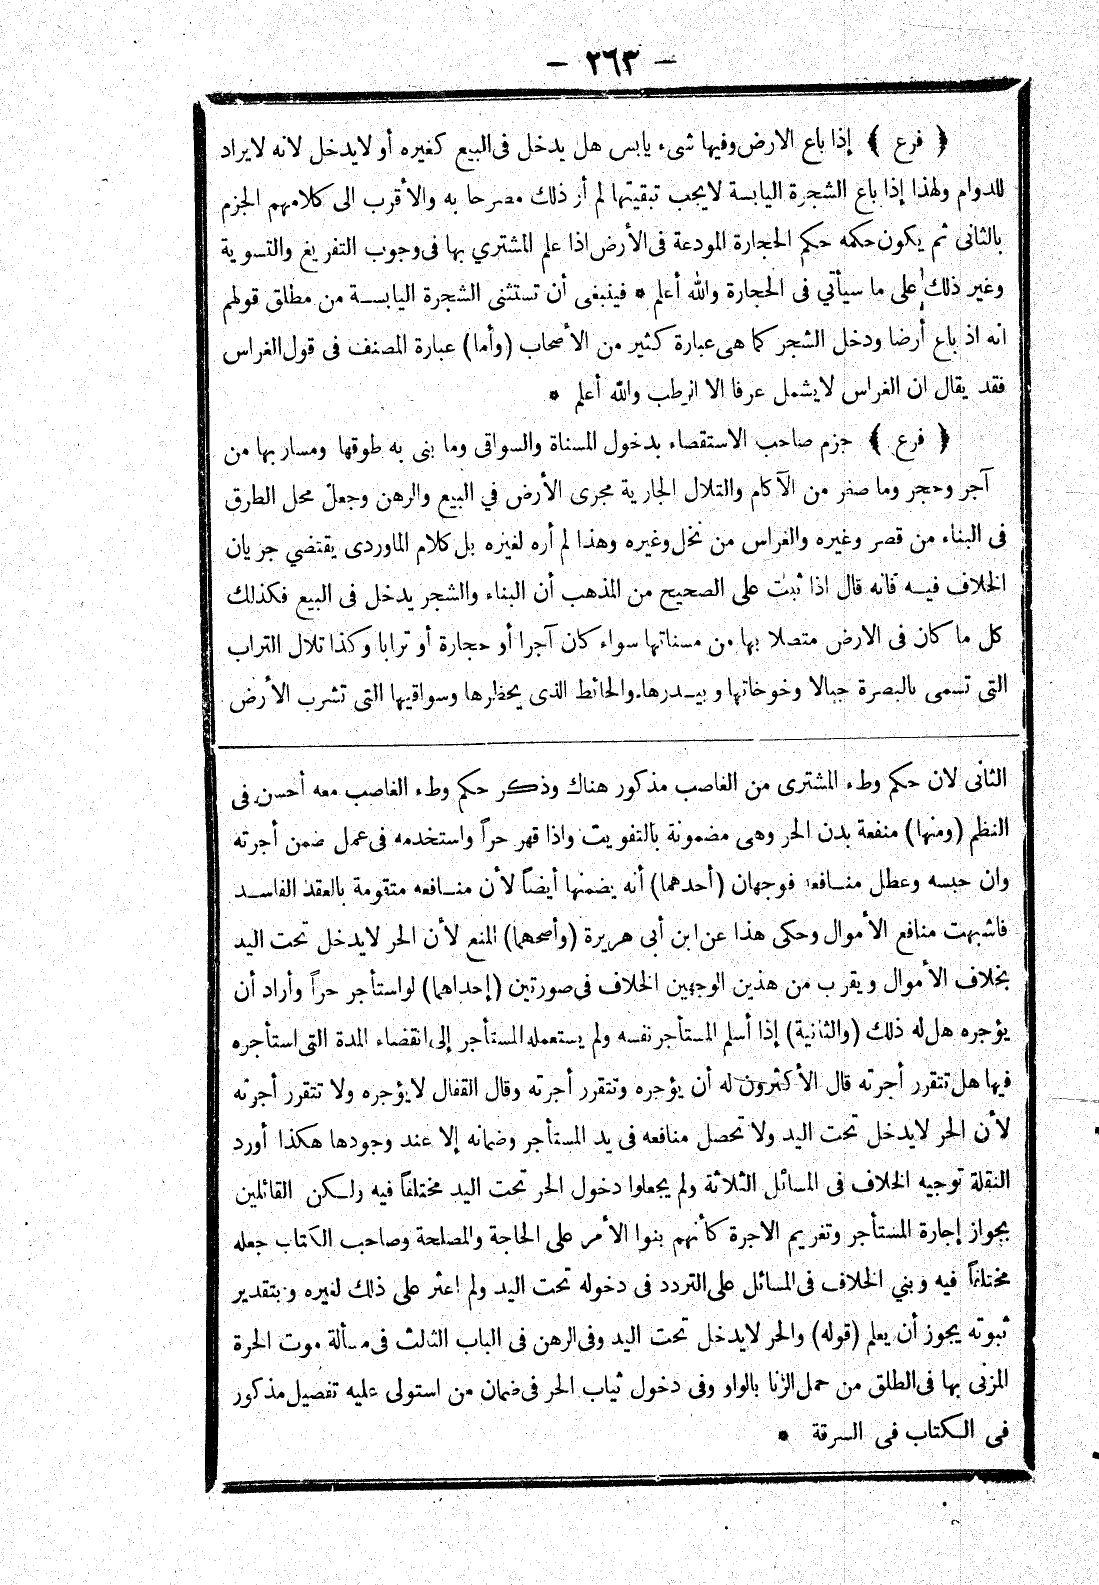 — ٢٦٣ —
﴿ فرع ﴾ إذا باع الارض وفيها شىء يابس هل يدخل فى البيع كغيره أو لا يدخل لانه لايراد
للدوام ولهذا إذا باع الشجرة اليابسة لايجب تبقيتها لم أر ذلك مصرحا به والأقرب الى كلامهم الجزم
بالثانى ثم يكون حكمه حكم الحجارة المودعة فى الأرض اذا علم المشتري بها فى وجوب التفريغ والتسوية
وغير ذلك على ما سيأتي فى الحجارة والله أعلم * فينبغى أن تستثنى الشجرة اليابسة من مطلق قولهم
انه اذ باع أرضا ودخل الشجر كما هى عبارة كثير من الأصحاب (وأما) عبارة المصنف فى قول الغراس
فقد يقال ان الغراس لايشمل عرفا الا الرطب والله أعلم *
﴿ فرع ﴾ جزم صاحب الاستقصاء بدخول المسناة والسواقى وما بنى به طوقها ومساربها من
آجر وحجر وما صغر من الآكام والتلال الجارية مجرى الأرض في البيع والرهن وجعل محل الطرق
فى البناء من قصر وغيره والغراس من نخل وغيره وهذا لم أره لغيره بل كلام الماوردى يقتضي جريان
الخلاف فيه فانه قال اذا ثبت على الصحيح من المذهب أن البناء والشجر يدخل فى البيع فكذلك
كل ما كان فى الارض متصلا بها من مسناتها سواء كان آجرا أو حجارة أو ترابا وكذا تلال التراب
التى تسمى بالبصرة جبالا وخوخاتها وبيدرها والحائط الذى يحظرها وسواقيها التى تشرب الأرض
الثانى لان حكم وطء المشترى من الغاصب مذكور هناك وذكر حكم وطء الغاصب معه أحسن فى
النظم (ومنها) منفعة بدن الحر وهى مضمونة بالتفويت واذا قهر حراً واستخدمه فى عمل ضمن أجرته
وان حبسه وعطل منافعه فوجهان (أحدهما) أنه يضمنها أيضاً لأن منافعه متقومة بالعقد الفاسد
فاشبهت منافع الأموال وحكى هذا عن ابن أبى هريرة (وأصحهما) المنع لأن الحر لايدخل تحت اليد
بخلاف الأموال ويقرب من هذين الوجهين الخلاف فى صورتين (إحداهما) لو استأجر حراً وأراد أن
يؤجره هل له ذلك (والثانية) إذا أسلم المستأجر نفسه ولم يستعمله المستأجر إلى انقضاء المدة التى استأجره
فيها هل تتقرر أجرته قال الأكثرون له أن يؤجره وتتقرر أجرته وقال القفال لايؤجره ولا تتقرر أجرته
لأن الحر لايدخل تحت اليد ولا تحصل منافعه فى يد المستأجر وضمانه إلا عند وجودها هكذا أورد
النقلة توجيه الخلاف فى المسائل الثلاثة ولم يجعلوا دخول الحر تحت اليد مختلفاً فيه ولكن القائلين
بجواز إجارة المستأجر وتغريم الاجرة كأنهم بنوا الأمر على الحاجة والمصلحة وصاحب الكتاب جعله
مختلفاً فيه وبني الخلاف فى المسائل على التردد فى دخوله تحت اليد ولم اعثر على ذلك لغيره وبتقدير
ثبوته يجوز أن يعلم (قوله) والحر لايدخل تحت اليد وفى الرهن فى الباب الثالث فى مسألة موت الحرة
المزنى بها فى الطلق من حمل الزنا بالواو وفى دخول ثياب الحر فى ضمان من استولى عليه تفصيل مذكور
فى الكتاب فى السرقة *